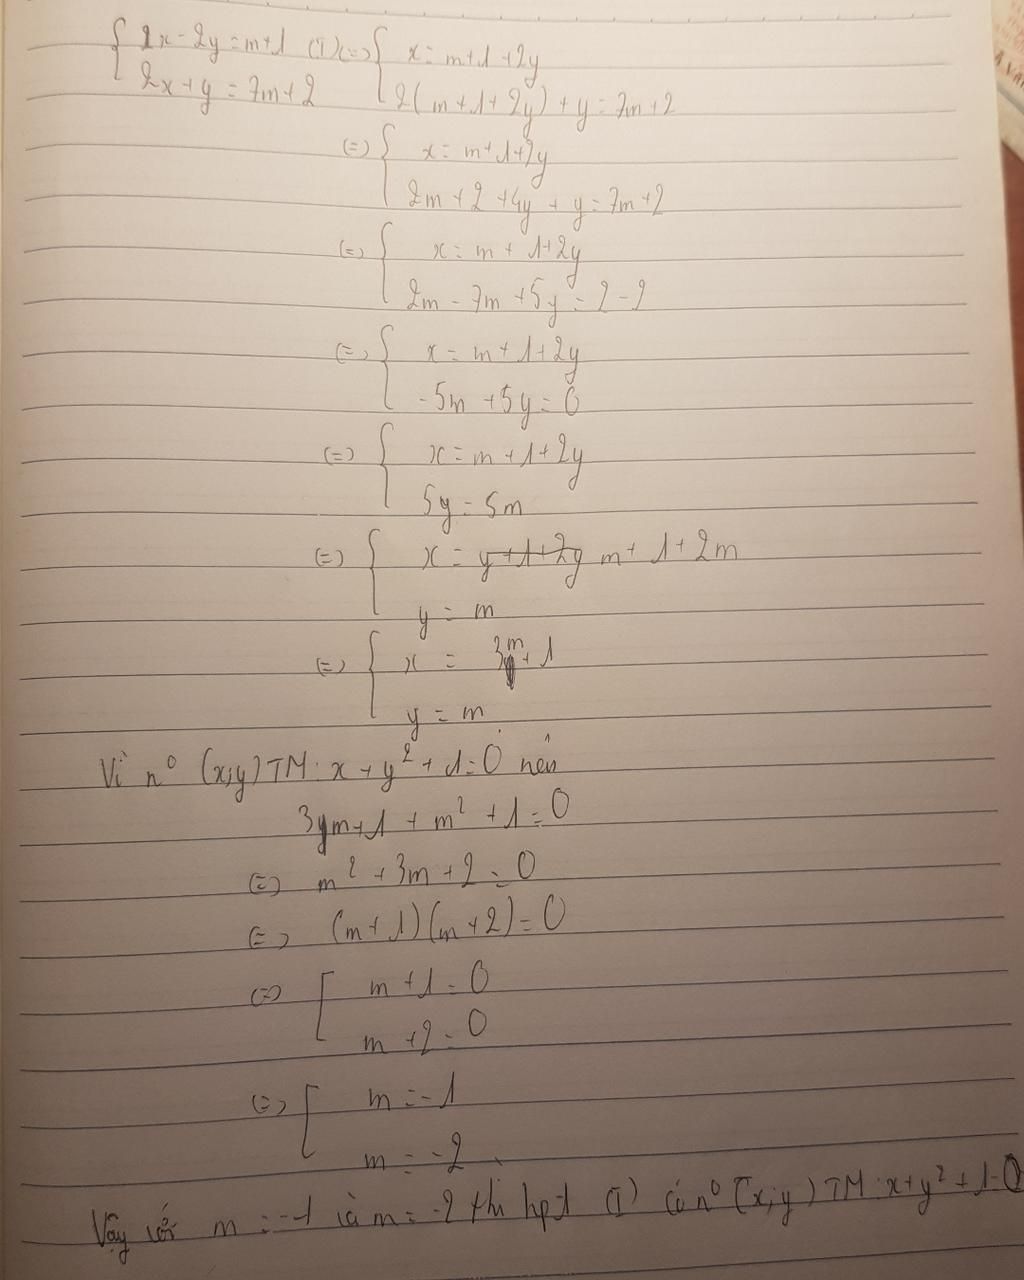 { x - 2y = m+1 (I) (=) { x = m+1+2y
2x+y = 7m+2 2(m+1+2y)+y = 7m+2
(=) { x = m+1+2y
2m+2+4y+y = 7m+2
(=) { x = m+1+2y
2m-7m+5y = 2-2
(=) { x = m+1+2y
-5m+5y = 0
(=) { x = m+1+2y
5y = 5m
(=) { x = y+1+2y m+1+2m
y = m
(=) { x = 3m+1
y = m
Vì n⁰ (x;y) TM: x+y²+1=0 nên
3ym+1+m²+1=0
(=) m²+3m+2=0
(=) (m+1)(m+2)=0
(=) [ m+1=0
m+2=0
(=) [ m=-1
m=-2
Vậy với m=-1 và m=-2 thì hpt (I) có n⁰ (x;y) TM: x+y²+1=0